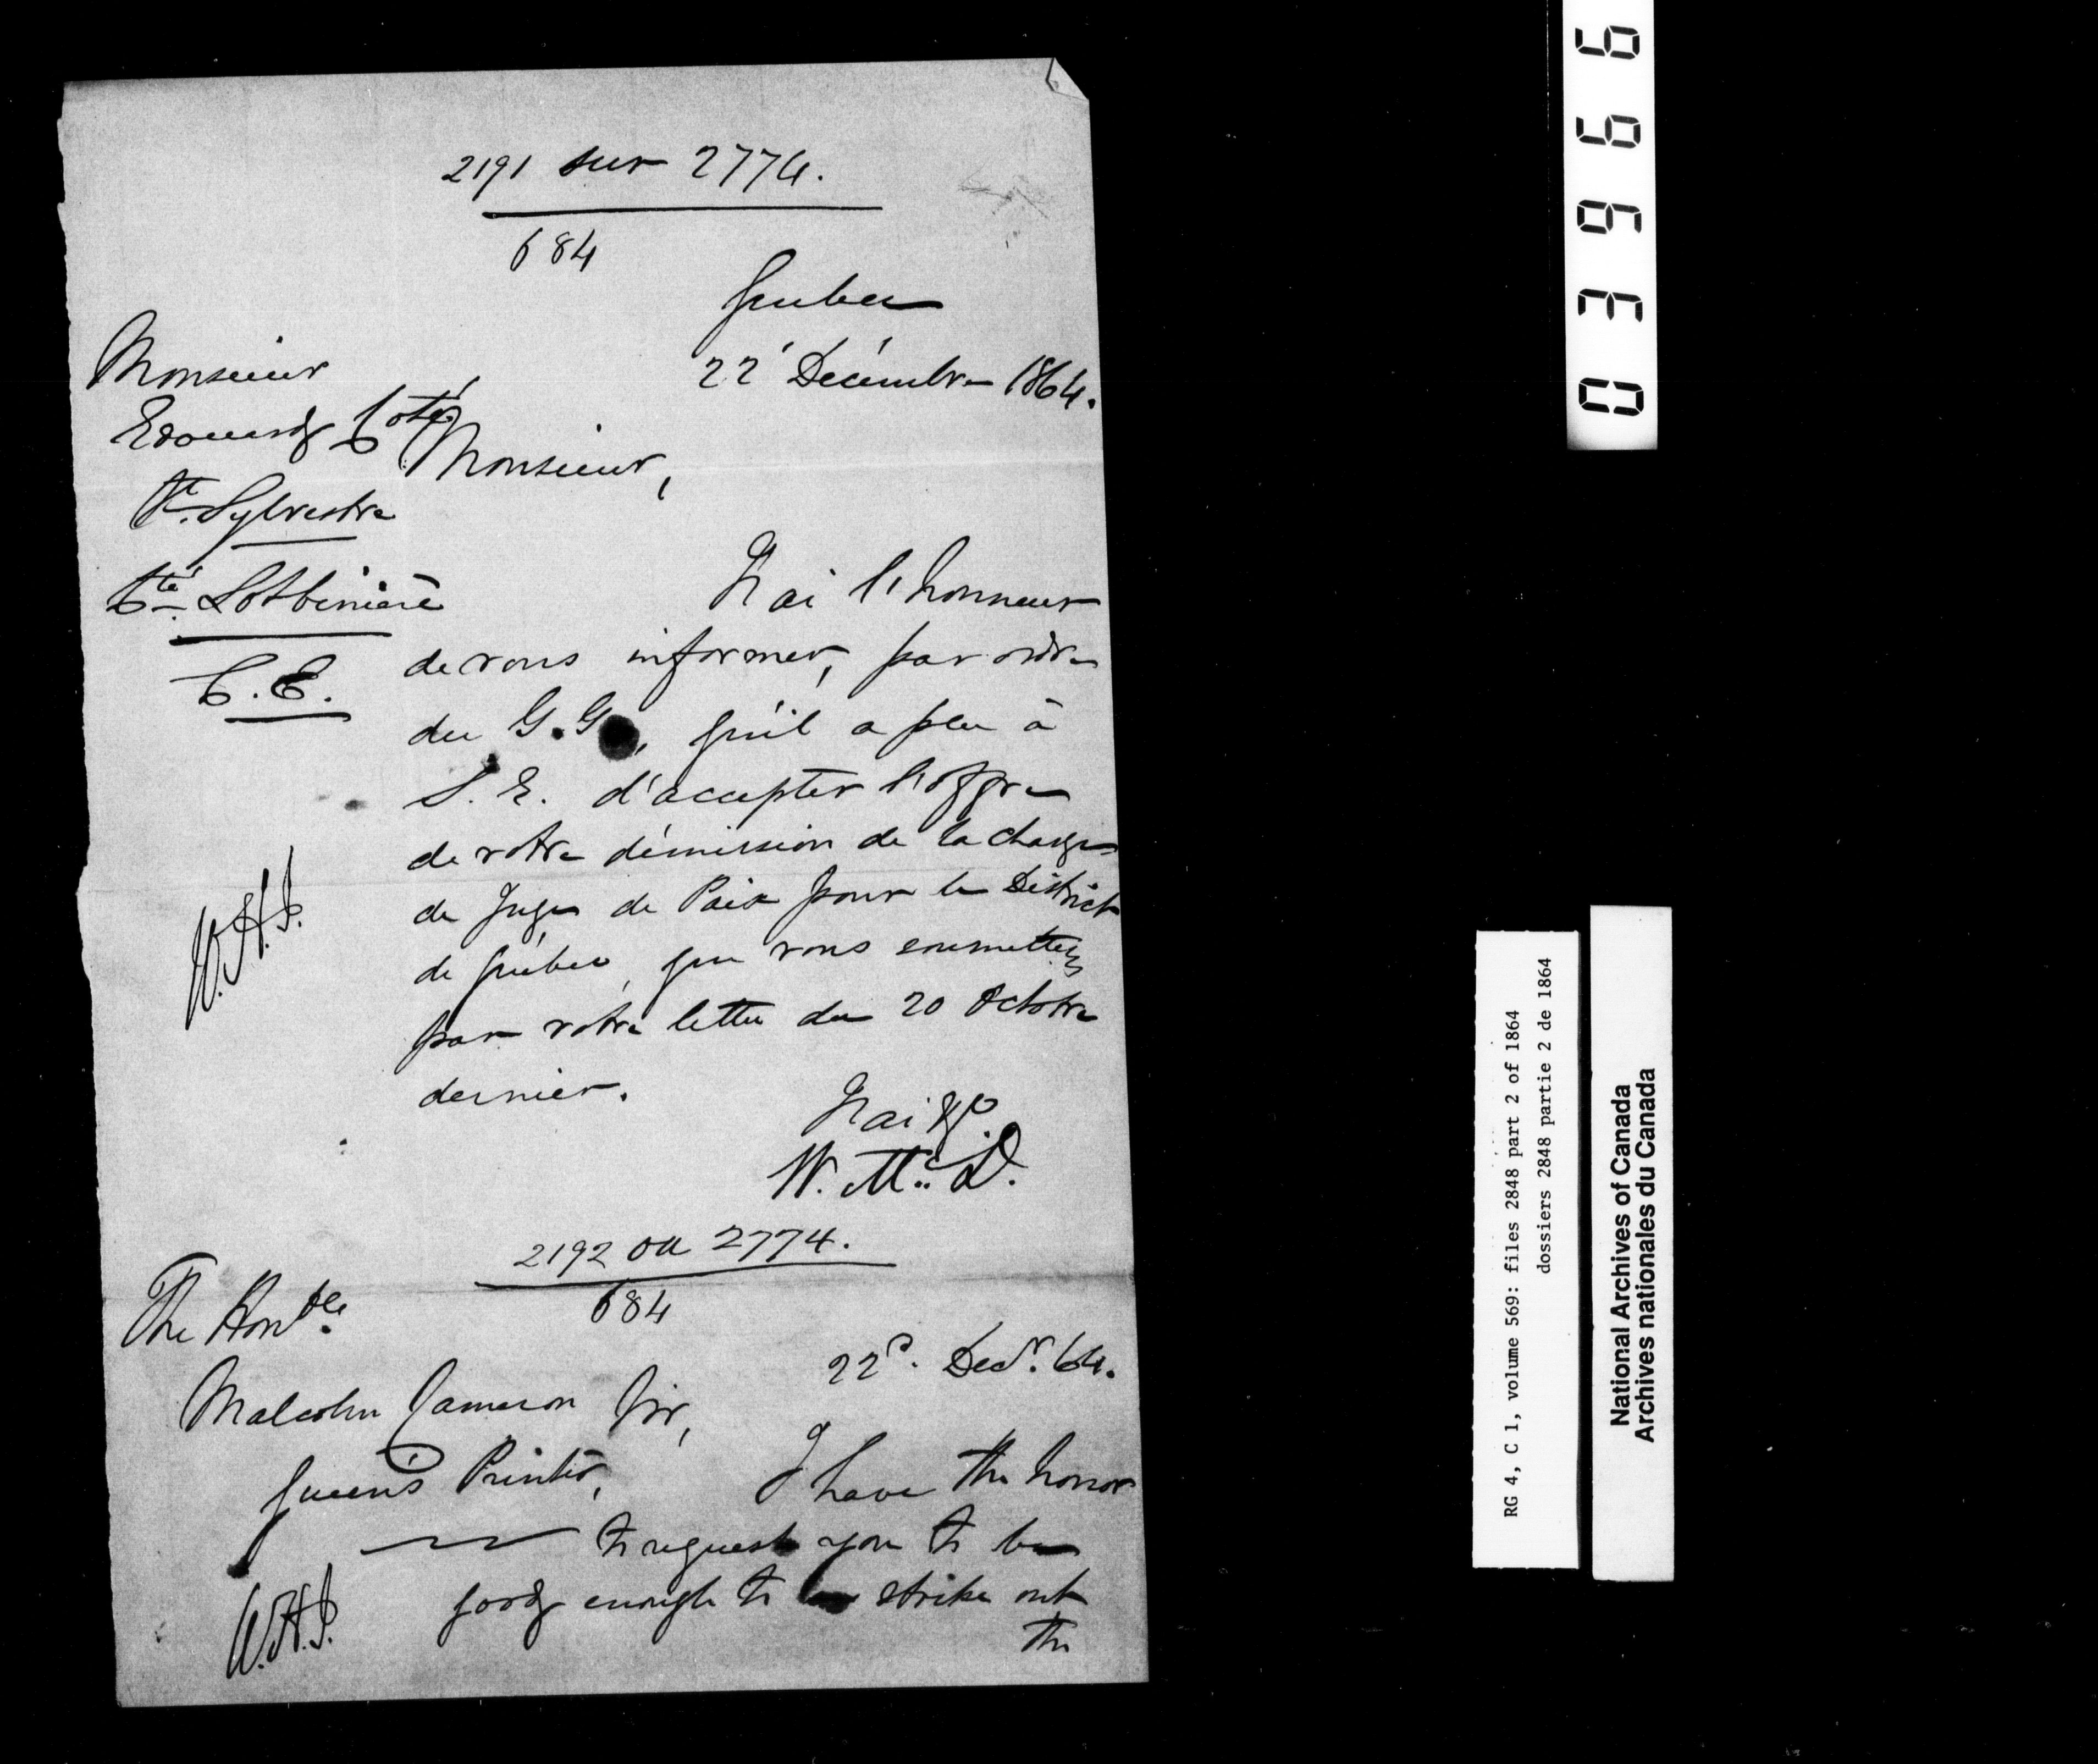 2191 sur 2774.
684
Québec
22 Décembre 1864.
Monsieur
Edouard Coté
St. Sylvestre
Cté Lotbinière
C.E.
Monsieur,
J'ai l'honneur
de vous informer, par ordre
du G.G., qu'il a plu à
S. E. d'accepter l'offre
de votre démission de la charge
de Juge de Paix pour le District
de Québec, que vous soumettez
par votre lettre du 20 Octobre
dernier.
J'ai &c
W. McD.
W.H.J.
2192 on 2774.
684
The Honble.
Malcolm Cameron Jnr,
Queen's Printer,
22d. Decr. 64.
I have the honor
to request you to be
good enough to strike out
the
W.H.J.
03966
RG 4, C 1, volume 569: files 2848 part 2 of 1864
dossiers 2848 partie 2 de 1864
National Archives of Canada
Archives nationales du Canada